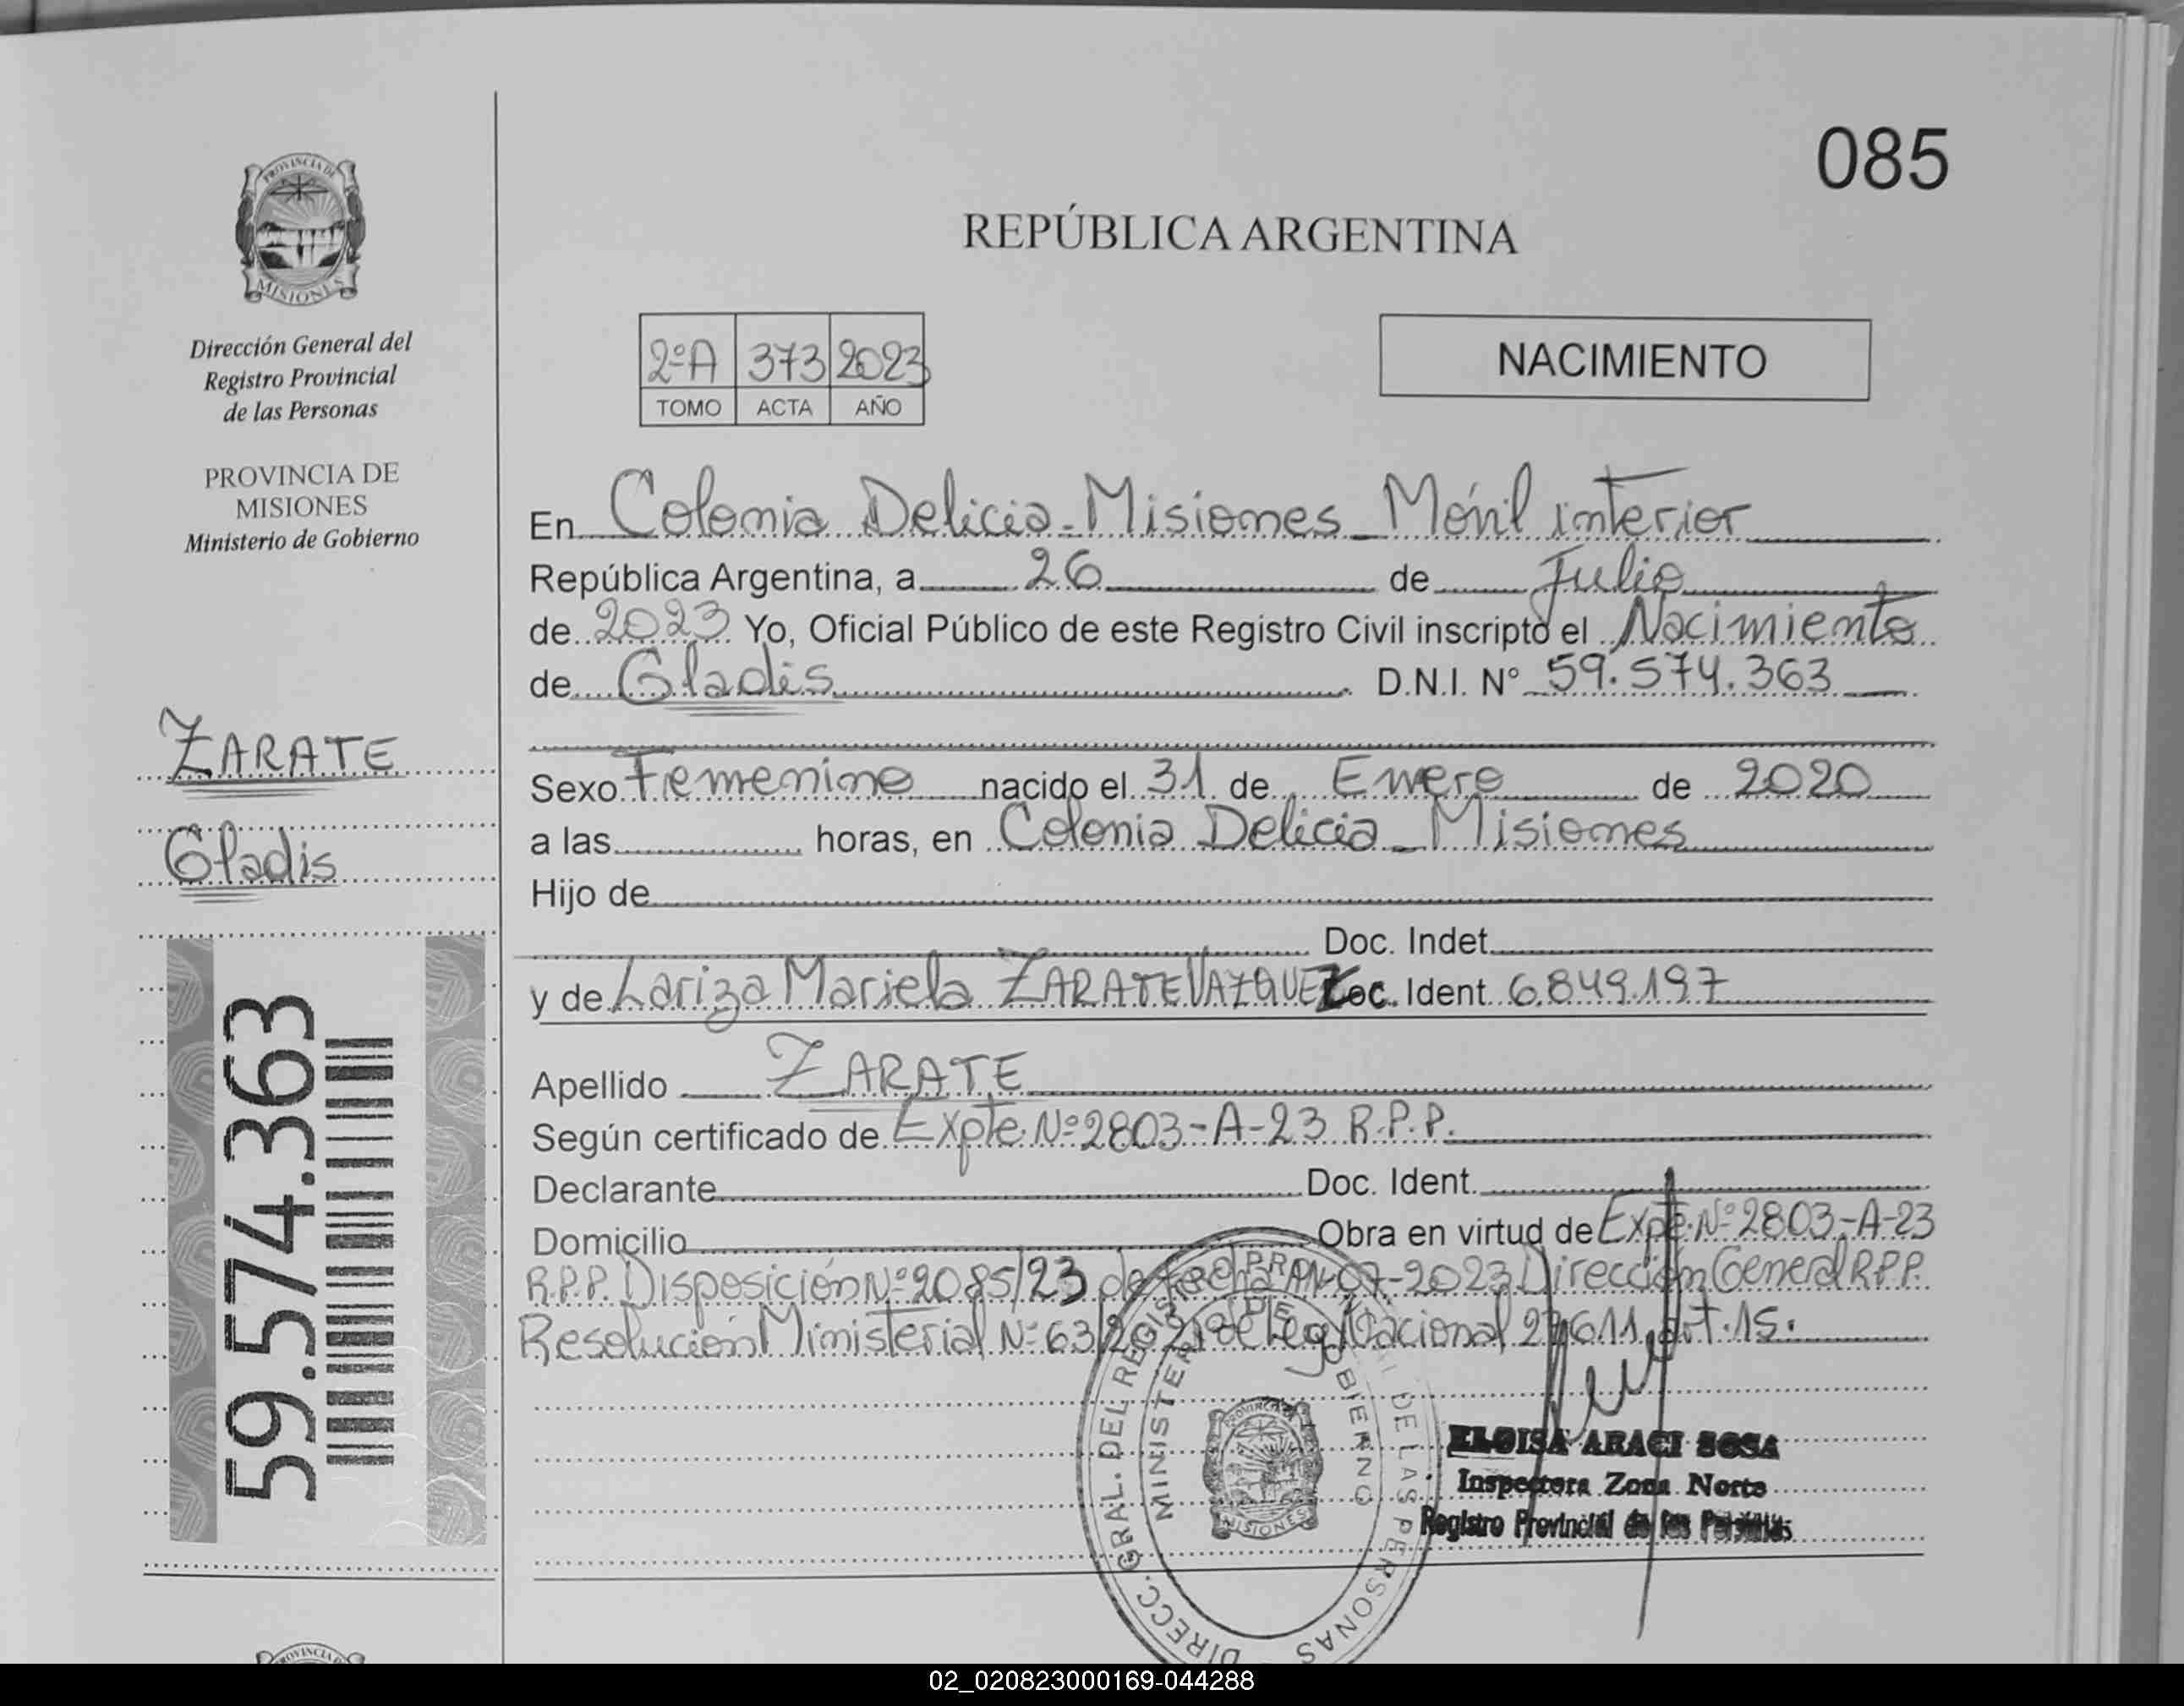 085
PROVINCIA DE
MISIONES
Dirección General del
Registro Provincial
de las Personas
PROVINCIA DE
MISIONES
Ministerio de Gobierno
ZARATE
Gladis
59.574.363
REPÚBLICA ARGENTINA
2ºA 373 2023
TOMO ACTA AÑO
NACIMIENTO
En Colonia Delicia - Misiones - Móvil interior
República Argentina, a 26 de Julio
de 2023 Yo, Oficial Público de este Registro Civil inscripto el Nacimiento
de Gladis D.N.I. Nº 59.574.363
Sexo Femenino nacido el 31 de Enero de 2020
a las horas, en Colonia Delicia - Misiones
Hijo de
Doc. Indet.
y de Lariza Mariela ZARATE VAZQUEZ Doc. Ident. 6.849.197
Apellido ZARATE
Según certificado de Expte. Nº 2803-A-23 R.P.P.
Declarante Doc. Ident.
Domicilio Obra en virtud de Expte. Nº 2803-A-23
R.P.P. Disposición Nº 2085/23 de fecha 07-2023 Dirección General R.P.P.
Resolución Ministerial Nº 63/2021 de Ley Nacional 27611 art. 15.
DIRECC. GRAL. DEL REGISTRO PROVINCIAL DE LAS PERSONAS
MINISTERIO DE GOBIERNO
PROVINCIA DE
MISIONES
ELOISA ARACI SOSA
Inspectora Zona Norte
Registro Provincial de las Personas
PROVINCIA
02_020823000169-044288